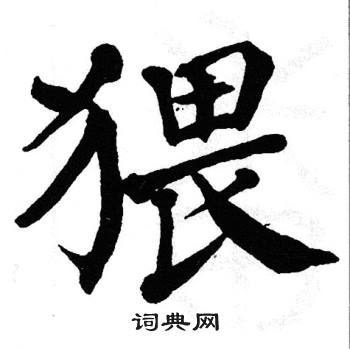 猥
词典网